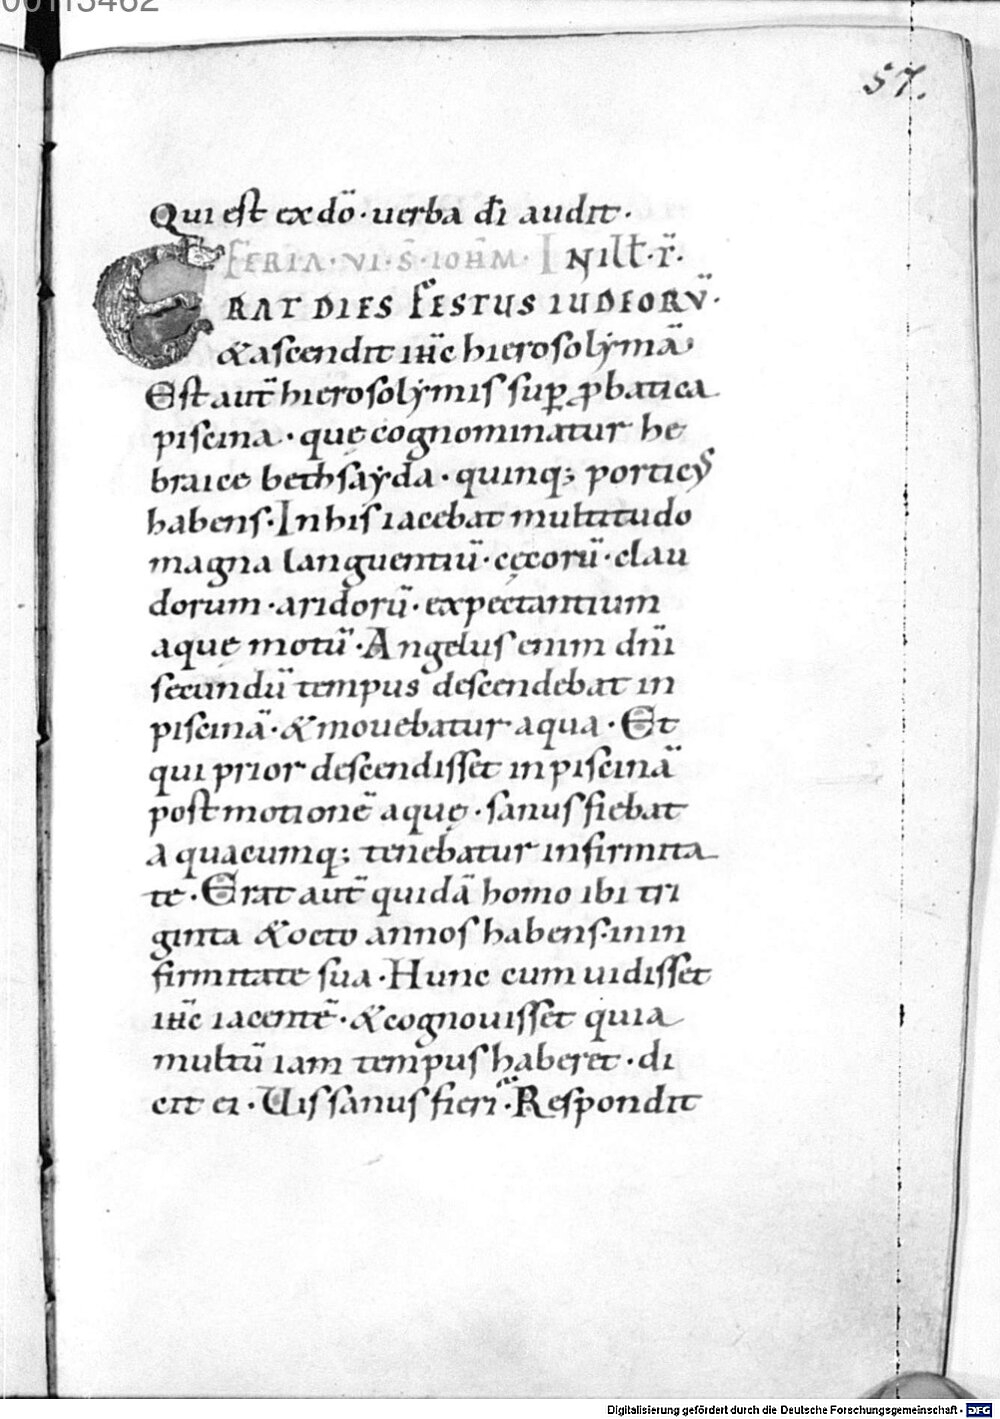 00113462
57.
Qui est ex dō · uerba dī audit ·
FERIA · VI · S̄ · IOHM̄ · IN ILL̄ · T̄ ·
ERAT DIES FESTUS IUDEORṺ ·
& ascendit ih̄c hierosolẏmā
Est aut̄ hierosolẏmis sup̱ p̱batica
piscina · quę cognominatur he
braice bethsaẏda · quinq; porticꝰ
habens · In his iacebat multitudo
magna languentiū · cęcorū · clau
dorum · aridorū · expectantium
aquę motū · Angelus enim dn̄i
secundū tempus descendebat in
piscinā · & mouebatur aqua · Et
qui prior descendisset in piscinā
post motionē aquę · sanus fiebat
a quacumq; tenebatur infirmita
te · Erat aut̄ quidā homo ibi tri
ginta & octo annos habens · in in
firmitate sua · Hunc cum uidisset
ih̄c iacentē · & cognouisset quia
multū iam tempus haberet · di
cit ei · Uis sanus fieri · Respondit
Digitalisierung gefördert durch die Deutsche Forschungsgemeinschaft - DFG